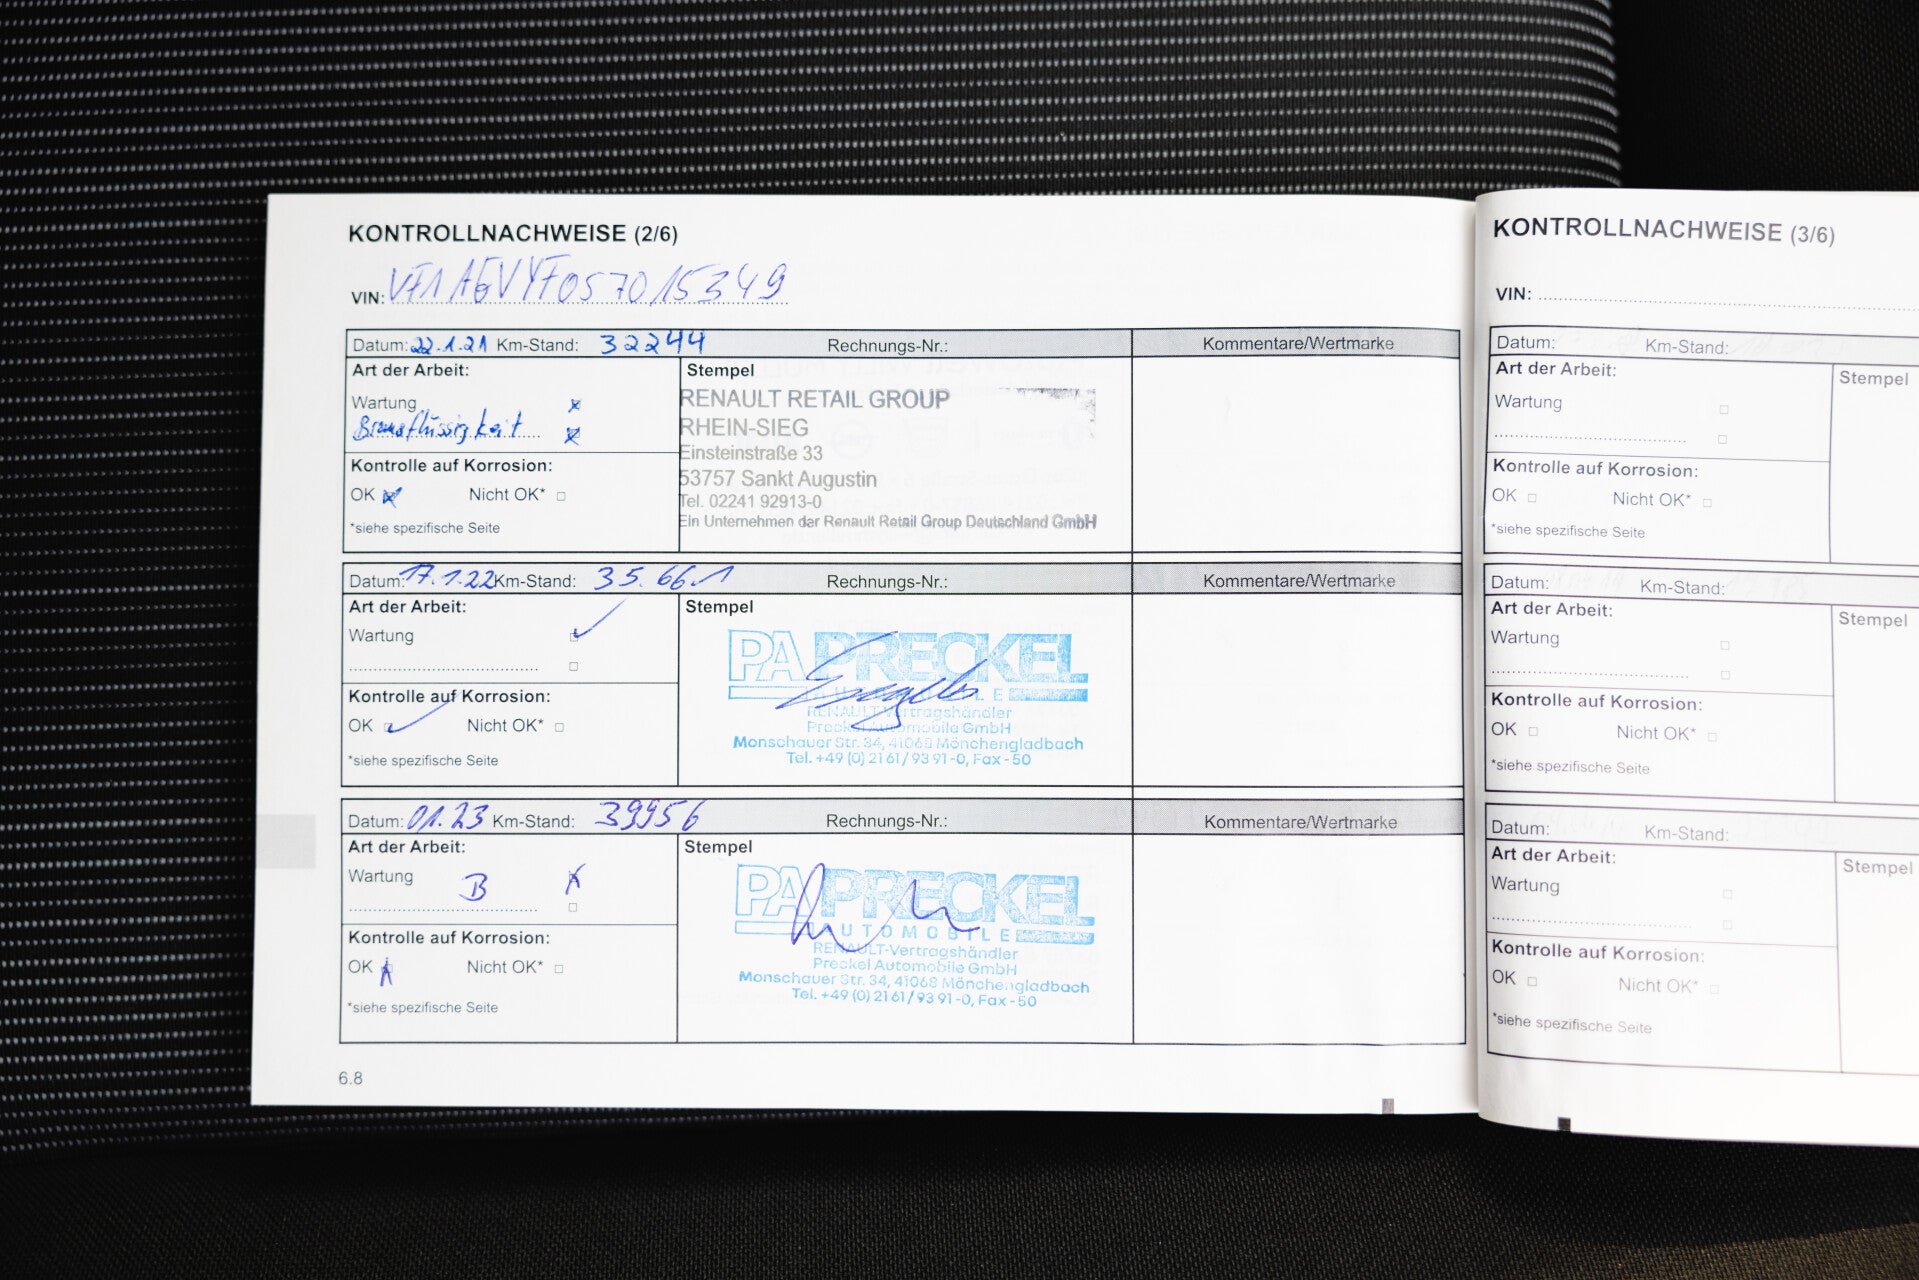 KONTROLLNACHWEISE (2/6)
VIN: VF1AGVYF057015349
Datum: 22.1.21 Km-Stand: 32244 Rechnungs-Nr.: Kommentare/Wertmarke
Art der Arbeit: Stempel
Wartung
Bremsflüssigkeit
Kontrolle auf Korrosion:
OK Nicht OK*
*siehe spezifische Seite
RENAULT RETAIL GROUP
RHEIN-SIEG
Einsteinstraße 33
53757 Sankt Augustin
Tel. 02241 92913-0
Ein Unternehmen der Renault Retail Group Deutschland GmbH
Datum: 17.1.22 Km-Stand: 35.661 Rechnungs-Nr.: Kommentare/Wertmarke
Art der Arbeit: Stempel
Wartung
Kontrolle auf Korrosion:
OK Nicht OK*
*siehe spezifische Seite
PA PRECKEL
RENAULT-Vertragshändler
Preckel Automobile GmbH
Monschauer Str. 34, 41068 Mönchengladbach
Tel. +49 (0) 21 61 / 93 91 -0, Fax -50
Datum: 01.23 Km-Stand: 39956 Rechnungs-Nr.: Kommentare/Wertmarke
Art der Arbeit: Stempel
Wartung B
Kontrolle auf Korrosion:
OK Nicht OK*
*siehe spezifische Seite
PA PRECKEL
AUTOMOBILE
RENAULT-Vertragshändler
Preckel Automobile GmbH
Monschauer Str. 34, 41068 Mönchengladbach
Tel. +49 (0) 21 61 / 93 91 -0, Fax -50
6.8
KONTROLLNACHWEISE (3/6)
VIN:
Datum: Km-Stand:
Art der Arbeit: Stempel
Wartung
Kontrolle auf Korrosion:
OK Nicht OK*
*siehe spezifische Seite
Datum: Km-Stand:
Art der Arbeit: Stempel
Wartung
Kontrolle auf Korrosion:
OK Nicht OK*
*siehe spezifische Seite
Datum: Km-Stand:
Art der Arbeit: Stempel
Wartung
Kontrolle auf Korrosion:
OK Nicht OK*
*siehe spezifische Seite